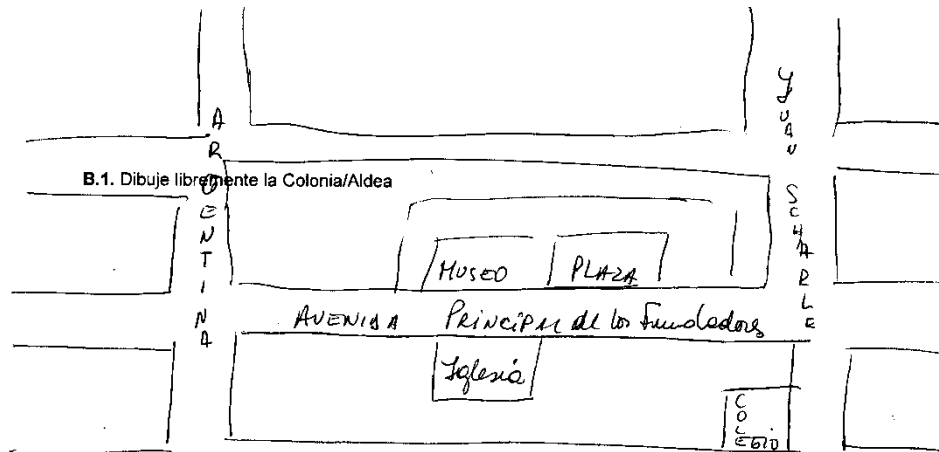 B.1. Dibuje libremente la Colonia/Aldea
ARGENTINA
JUAN SCHARLE
MUSEO
PLAZA
AVENIDA PRINCIPAL de los Fundadores
Iglesia
COLEGIO